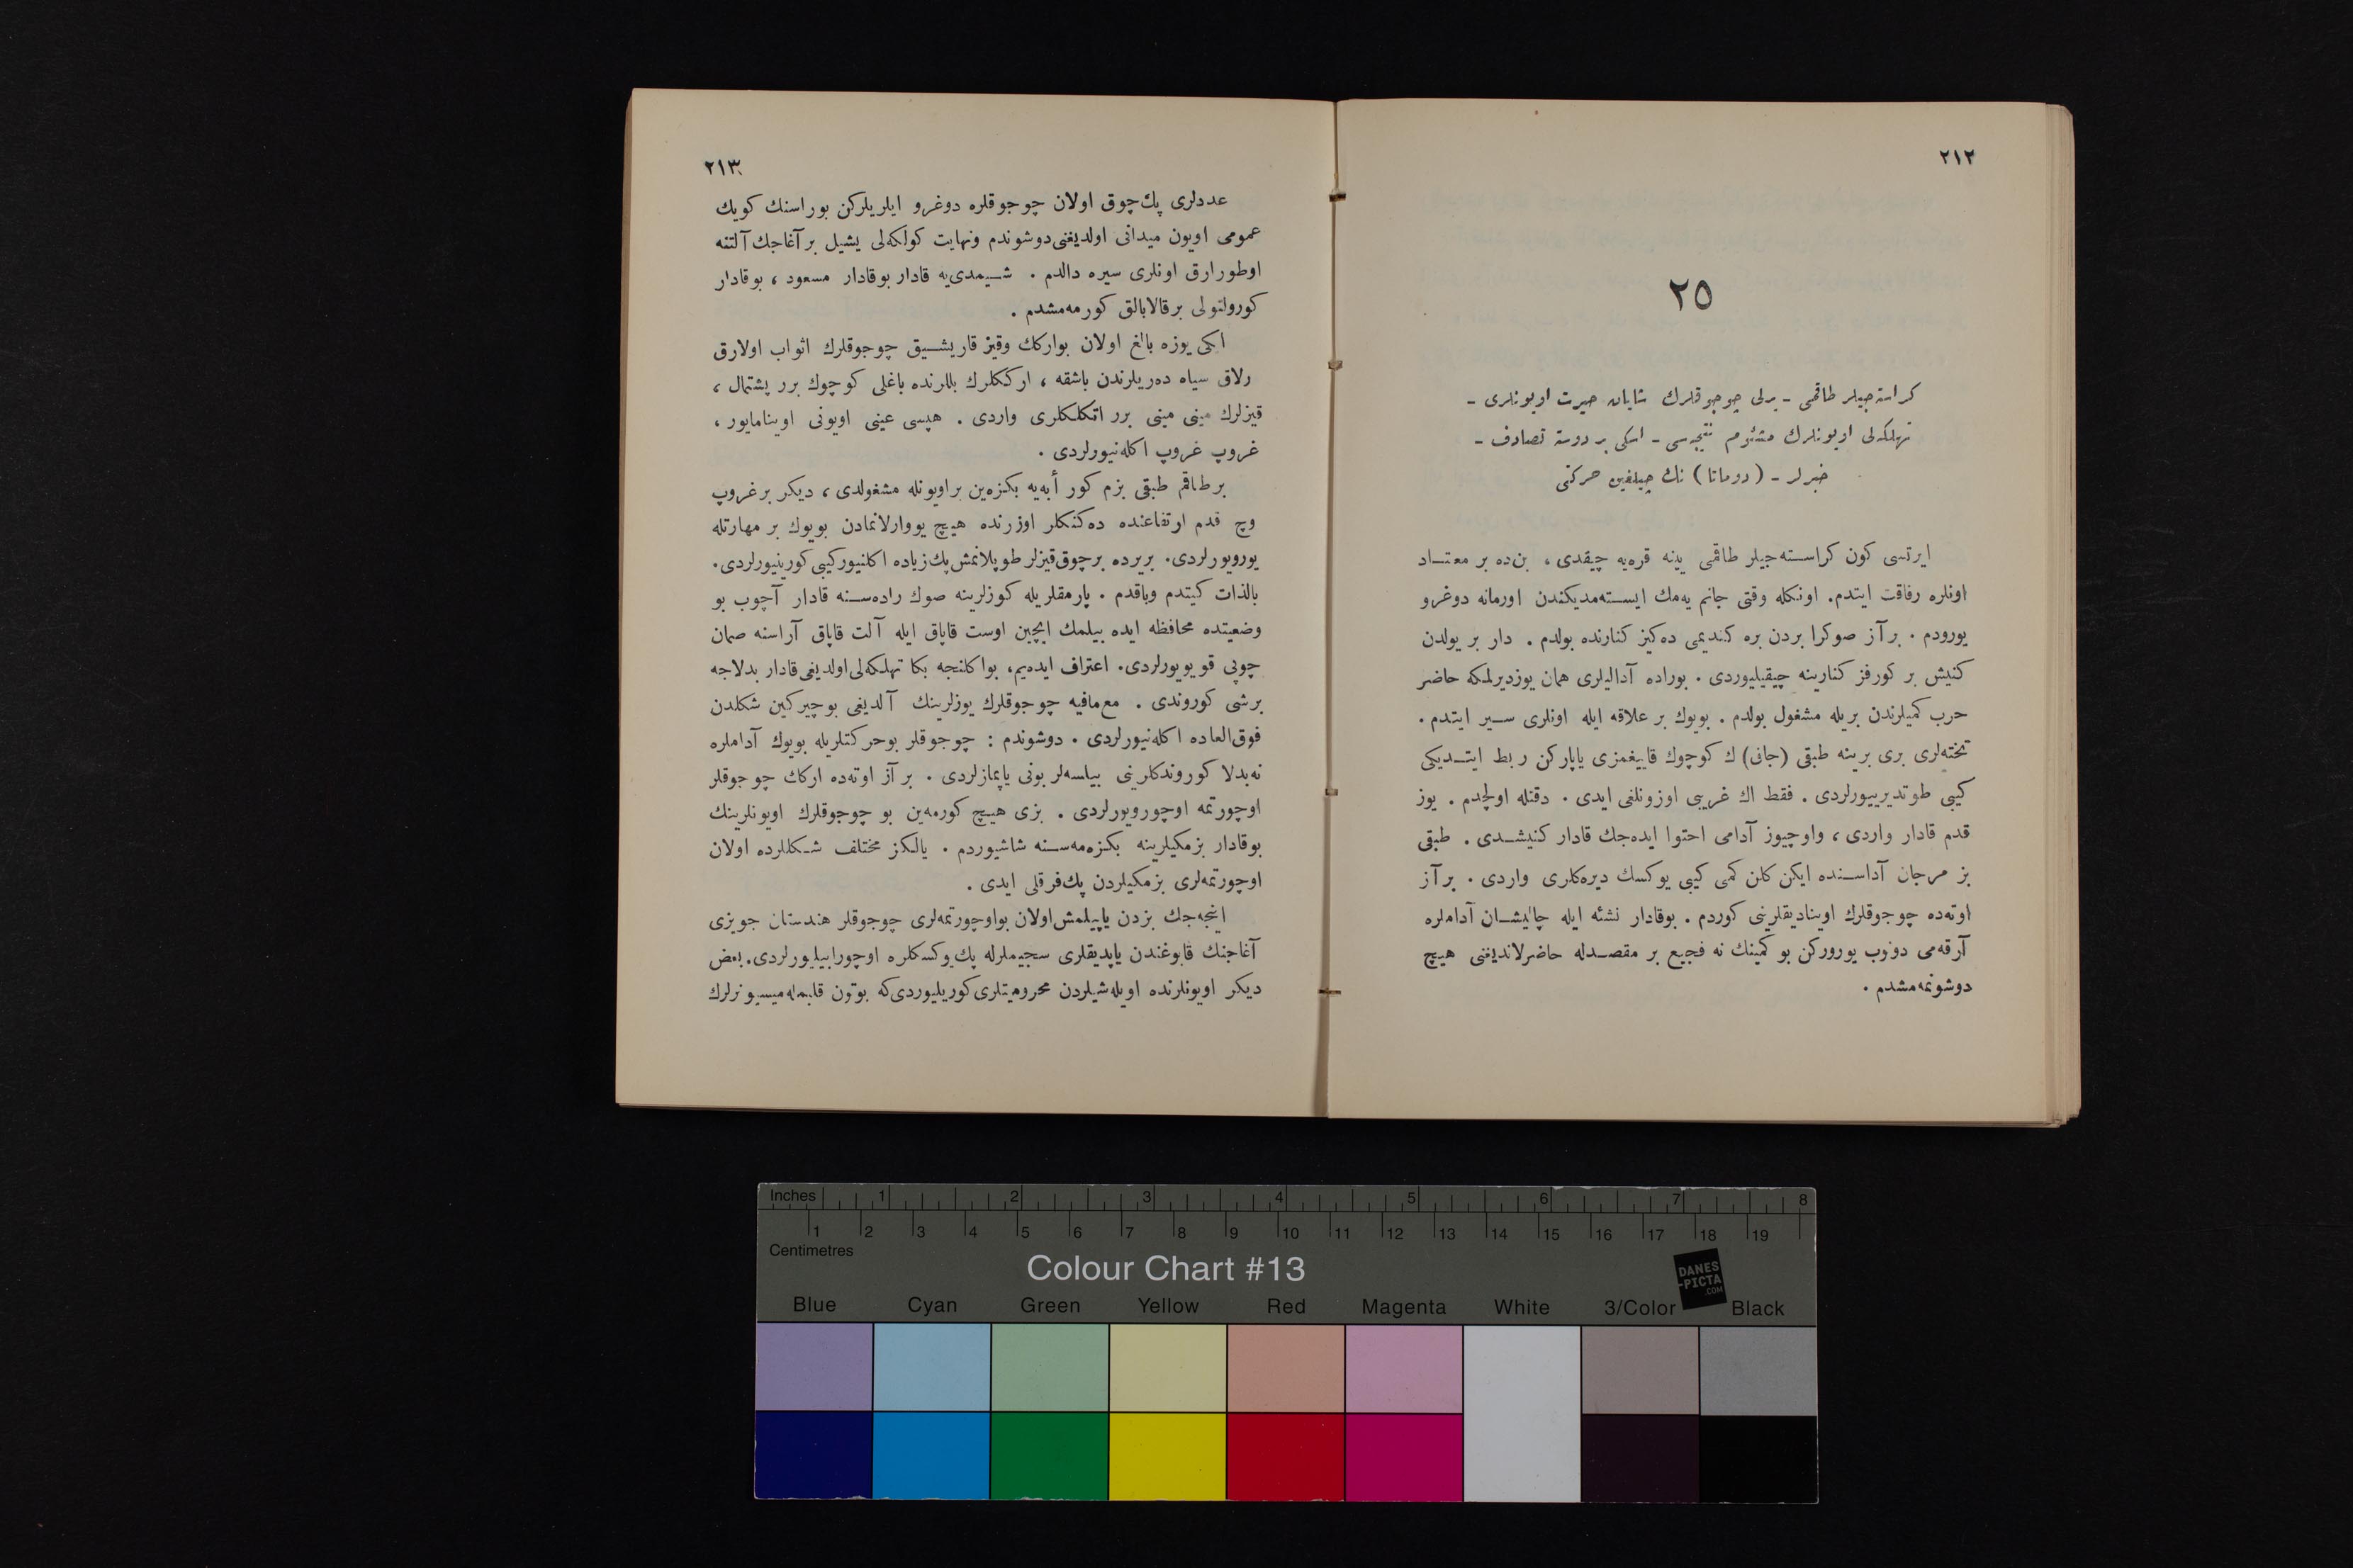 ٢١٢
٢٥
كراسته‌جیلر طاقمی - یرلی چوجوقلرك شایان حیرت اویونلری -
تهلكه‌لی اویونلرك مشئوم نتیجه‌سی - اسكی بر دوسته تصادف -
خبرلر - (دوماتا) نك چیلغین حركتی
ایرتسی كون كراسته‌جیلر طاقمی ینه قره‌یه چیقدی ، بن‌ده بر معتاد
اونلره رفاقت ایتدم. اونكله وقتی جانم یه‌مك ایسته‌مدیكندن اورمانه دوغرو
یورودم . برآز صوكرا بردن بره كندیمی ده‌كیز كنارنده بولدم . دار بر یولدن
كنیش بر كورفز كنارینه چیقیلیوردی . بوراده آدالیلری همان یوزدیرلمكه حاضر
حرب كمیلرندن بریله مشغول بولدم . بویوك بر علاقه ایله اونلری سیر ایتدم .
تخته‌لری بری برینه طبقی (جانی) ك كوچوك قاییغمزی یاپاركن ربط ایتدیكی
كیبی طوتدیرییورلردی . فقط اك غریبی اوزونلغی ایدی . دقتله اولچدم . یوز
قدم قادار واردی ، واوچیوز آدامی احتوا ایده‌جك قادار كنیشدی . طبقی
بز مرجان آداسنده ایكن كلن كمی كیبی یوكسك دیره‌كلری واردی . برآز
اوته‌ده چوجوقلرك اویناد‌یقلرینی كوردم . بوقادار نشئه ایله چالیشان آداملره
آرقه‌می دونوب یوروركن بو كمینك نه فجیع بر مقصدله حاضرلاندیغنی هیچ
دوشونمه‌مشدم .
٢١٣
عددلری پك‌چوق اولان چوجوقلره دوغرو ایلریلركن بوراسنك كویك
عمومی اویون میدانی اولدیغنی دوشوندم ونهایت كولكه‌لی یشیل برآغاجك آلتنه
اوطورارق اونلری سیره دالدم . شیمدی‌یه قادار بوقادار مسعود ، بوقادار
كورولتولی برقالابالق كورمه‌مشدم .
اكی یوزه بالغ اولان بواركك وقیز قاریشیق چوجوقلرك اثواب اولارق
سیاه ده‌ریلرندن باشقه ، ارككلرك بللرنده باغلی كوچوك برر پشتمال ،
قیزلرك مینی مینی برر اتكلكلری واردی . هپسی عینی اویونی اوینامایور ،
غروپ غروپ اكله‌نیورلردی .
برطاقم طبقی بزم كور أبه‌یه بكزه‌ین براویونله مشغولدی ، دیكر برغروپ
وچ قدم ارتفاعنده ده‌كنكلر اوزرنده هیچ یووارلانمادن بویوك بر مهارتله
یورویورلردی. بریرده برچوق‌قیزلر طوپلانمش پك‌زیاده اكلنیوركیبی كورینیورلردی.
بالذات كیتدم وباقدم . پارمقلریله كوزلرینه صوك راده‌سنه قادار آچوب بو
وضعیتده محافظه ایده بیلمك ایچین اوست قاپاق ایله آلت قاپاق آراسنه صمان
چوپی قویویورلردی. اعتراف ایده‌یم، بواكلنجه بكا تهلكه‌لی‌اولدیغی قادار بدلاجه
برشی كوروندی . مع‌مافیه چوجوقلرك یوزلرینك آلدیغی بوچیركین شكلدن
فوق‌العاده اكله‌نیورلردی . دوشوندم : چوجوقلر بوحركتلریله بویوك آداملره
نه‌بدلا كوروندكلرنی بیلسه‌لر بونی یاپمازلردی . برآز اوته‌ده اركك چوجوقلر
اوچورتمه اوچورویورلردی . بزی هیچ كورمه‌ین بو چوجوقلرك اویونلرینك
بوقادار بزمكیلرینه بكزه‌مه‌سنه شاشیوردم . یالكز مختلف شكللرده اولان
اوچورتمه‌لری بزمكیلردن پك‌فرقلی ایدی .
اینجه‌جك بزدن یاپیلمش‌اولان بواوچورتمه‌لری چوجوقلر هندستان جویزی
آغاجنك قابوغندن یاپدیقلری سجیملرله پك‌یوكسكلره اوچورابیلیورلردی. بعض
دیكر اویونلرنده اویله‌شیلردن محرومیتلری‌كوریلیوردی‌كه بوتون قلبمله‌میسیونرلرك